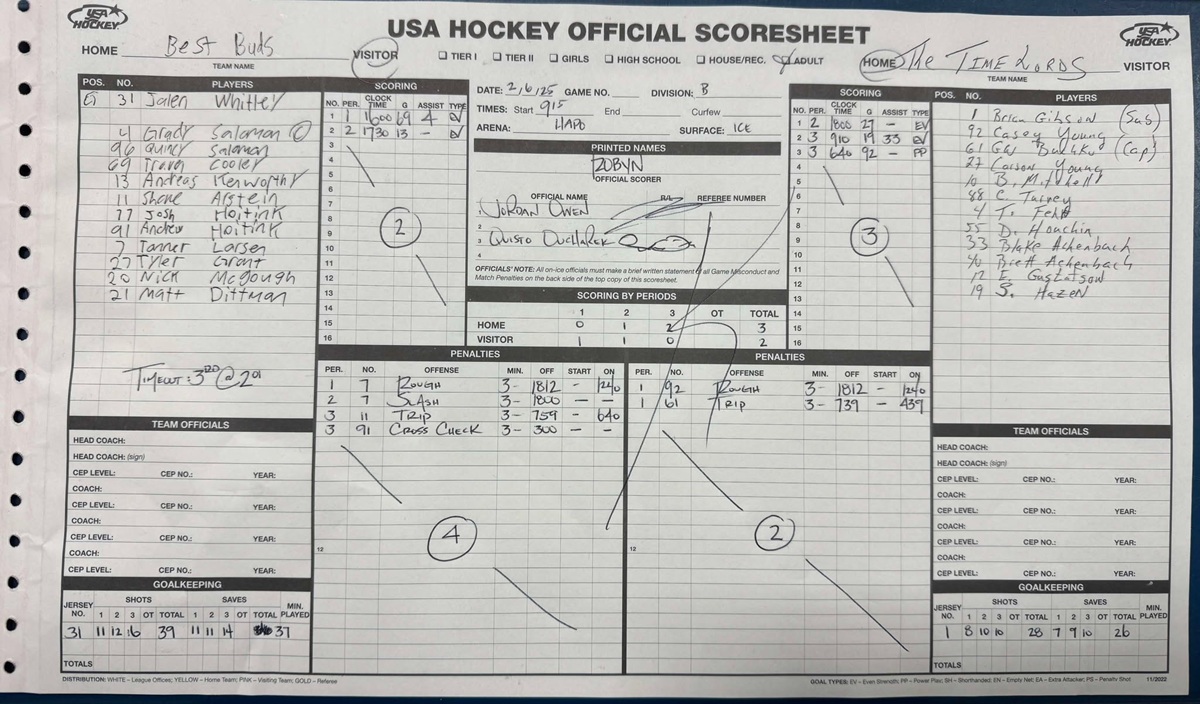 USA HOCKEY
USA HOCKEY OFFICIAL SCORESHEET
USA HOCKEY
HOME Best Buds VISITOR
TEAM NAME
TIER I TIER II GIRLS HIGH SCHOOL HOUSE/REC. ADULT
HOME The TIME LORDS VISITOR
TEAM NAME
POS. NO. PLAYERS
G 31 Jalen Whitley
4 Grady Salomon C
96 Quincy Salomon
69 Traver Cooley
13 Andreas Kenworthy
11 Shane Alstein
77 Josh Hoitink
91 Andrew Hoitink
7 Tanner Larsen
27 Tyler Grant
20 Nick McGough
21 Matt Dittman
TIMEOUT: 3RD @ 201
SCORING
NO. PER. CLOCK TIME G ASSIST TYPE
1 1 1600 69 4 EV
2 2 1730 13 - EV
3
4
5
6
7
8
9
10
11
12
13
14
15
16
2
DATE: 2/6/25 GAME NO. DIVISION: B
TIMES: Start 915 End Curfew
ARENA: HAPO SURFACE: ICE
PRINTED NAMES
ROBYN
OFFICIAL SCORER
OFFICIAL NAME R/L REFEREE NUMBER
1 JORDAN OWEN
2
3 QUISTO
4
OFFICIALS' NOTE: All on-ice officials must make a brief written statement of all Game Misconduct and
Match Penalties on the back side of the top copy of this scoresheet.
SCORING BY PERIODS
1 2 3 OT TOTAL
HOME 0 1 2 3
VISITOR 1 1 0 2
SCORING
NO. PER. CLOCK TIME G ASSIST TYPE
1 2 1800 27 - EV
2 3 910 19 33 EV
3 3 640 92 - PP
4
5
6
7
8
9
10
11
12
13
14
15
16
3
POS. NO. PLAYERS
1 Brian Gibson (Sub)
92 Casey Young
61 (Cap)
27 Carson Young
10 B. Mitchell
88 C. Turvey
4 T.
55 D. Houchin
33 Blake Achenbach
40 Brett Achenbach
12 E. Gustafson
19 S. HAZEN
PENALTIES
PER. NO. OFFENSE MIN. OFF START ON
1 7 ROUGH 3- 1812 - 1240
2 7 SLASH 3- 1800 - -
3 11 TRIP 3- 759 - 640
3 91 CROSS CHECK 3- 300 - -
12
4
PENALTIES
PER. NO. OFFENSE MIN. OFF START ON
1 92 ROUGH 3- 1812 - 1240
1 61 TRIP 3- 739 - 439
12
2
TEAM OFFICIALS
HEAD COACH:
HEAD COACH: (sign)
CEP LEVEL: CEP NO.: YEAR:
COACH:
CEP LEVEL: CEP NO.: YEAR:
COACH:
CEP LEVEL: CEP NO.: YEAR:
COACH:
CEP LEVEL: CEP NO.: YEAR:
GOALKEEPING
SHOTS SAVES
JERSEY NO. 1 2 3 OT TOTAL 1 2 3 OT TOTAL MIN. PLAYED
31 11 12 16 39 11 11 14 37
TOTALS
TEAM OFFICIALS
HEAD COACH:
HEAD COACH: (sign)
CEP LEVEL: CEP NO.: YEAR:
COACH:
CEP LEVEL: CEP NO.: YEAR:
COACH:
CEP LEVEL: CEP NO.: YEAR:
COACH:
CEP LEVEL: CEP NO.: YEAR:
GOALKEEPING
SHOTS SAVES
JERSEY NO. 1 2 3 OT TOTAL 1 2 3 OT TOTAL MIN. PLAYED
1 8 10 10 28 7 9 10 26
TOTALS
DISTRIBUTION: WHITE – League Offices; YELLOW – Home Team; PINK – Visiting Team; GOLD – Referee
GOAL TYPES: EV – Even Strength; PP – Power Play; SH – Shorthanded; EN – Empty Net; EA – Extra Attacker; PS – Penalty Shot 11/2022